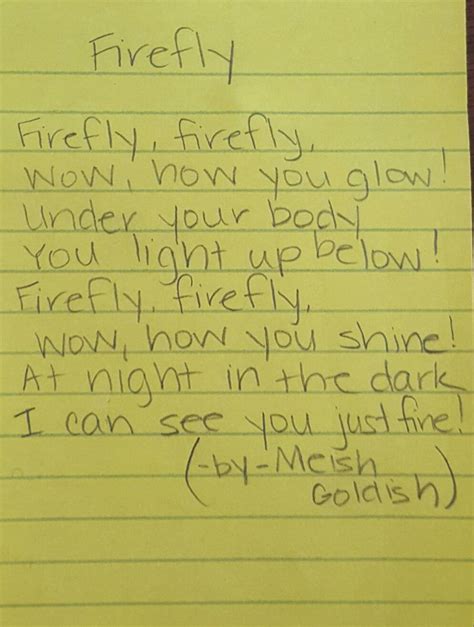 Firefly
Firefly, firefly,
Wow, how you glow!
Under your body
You light up below!
Firefly, firefly,
Wow, how you shine!
At night in the dark
I can see you just fine!
(-by-Meish
Goldish)